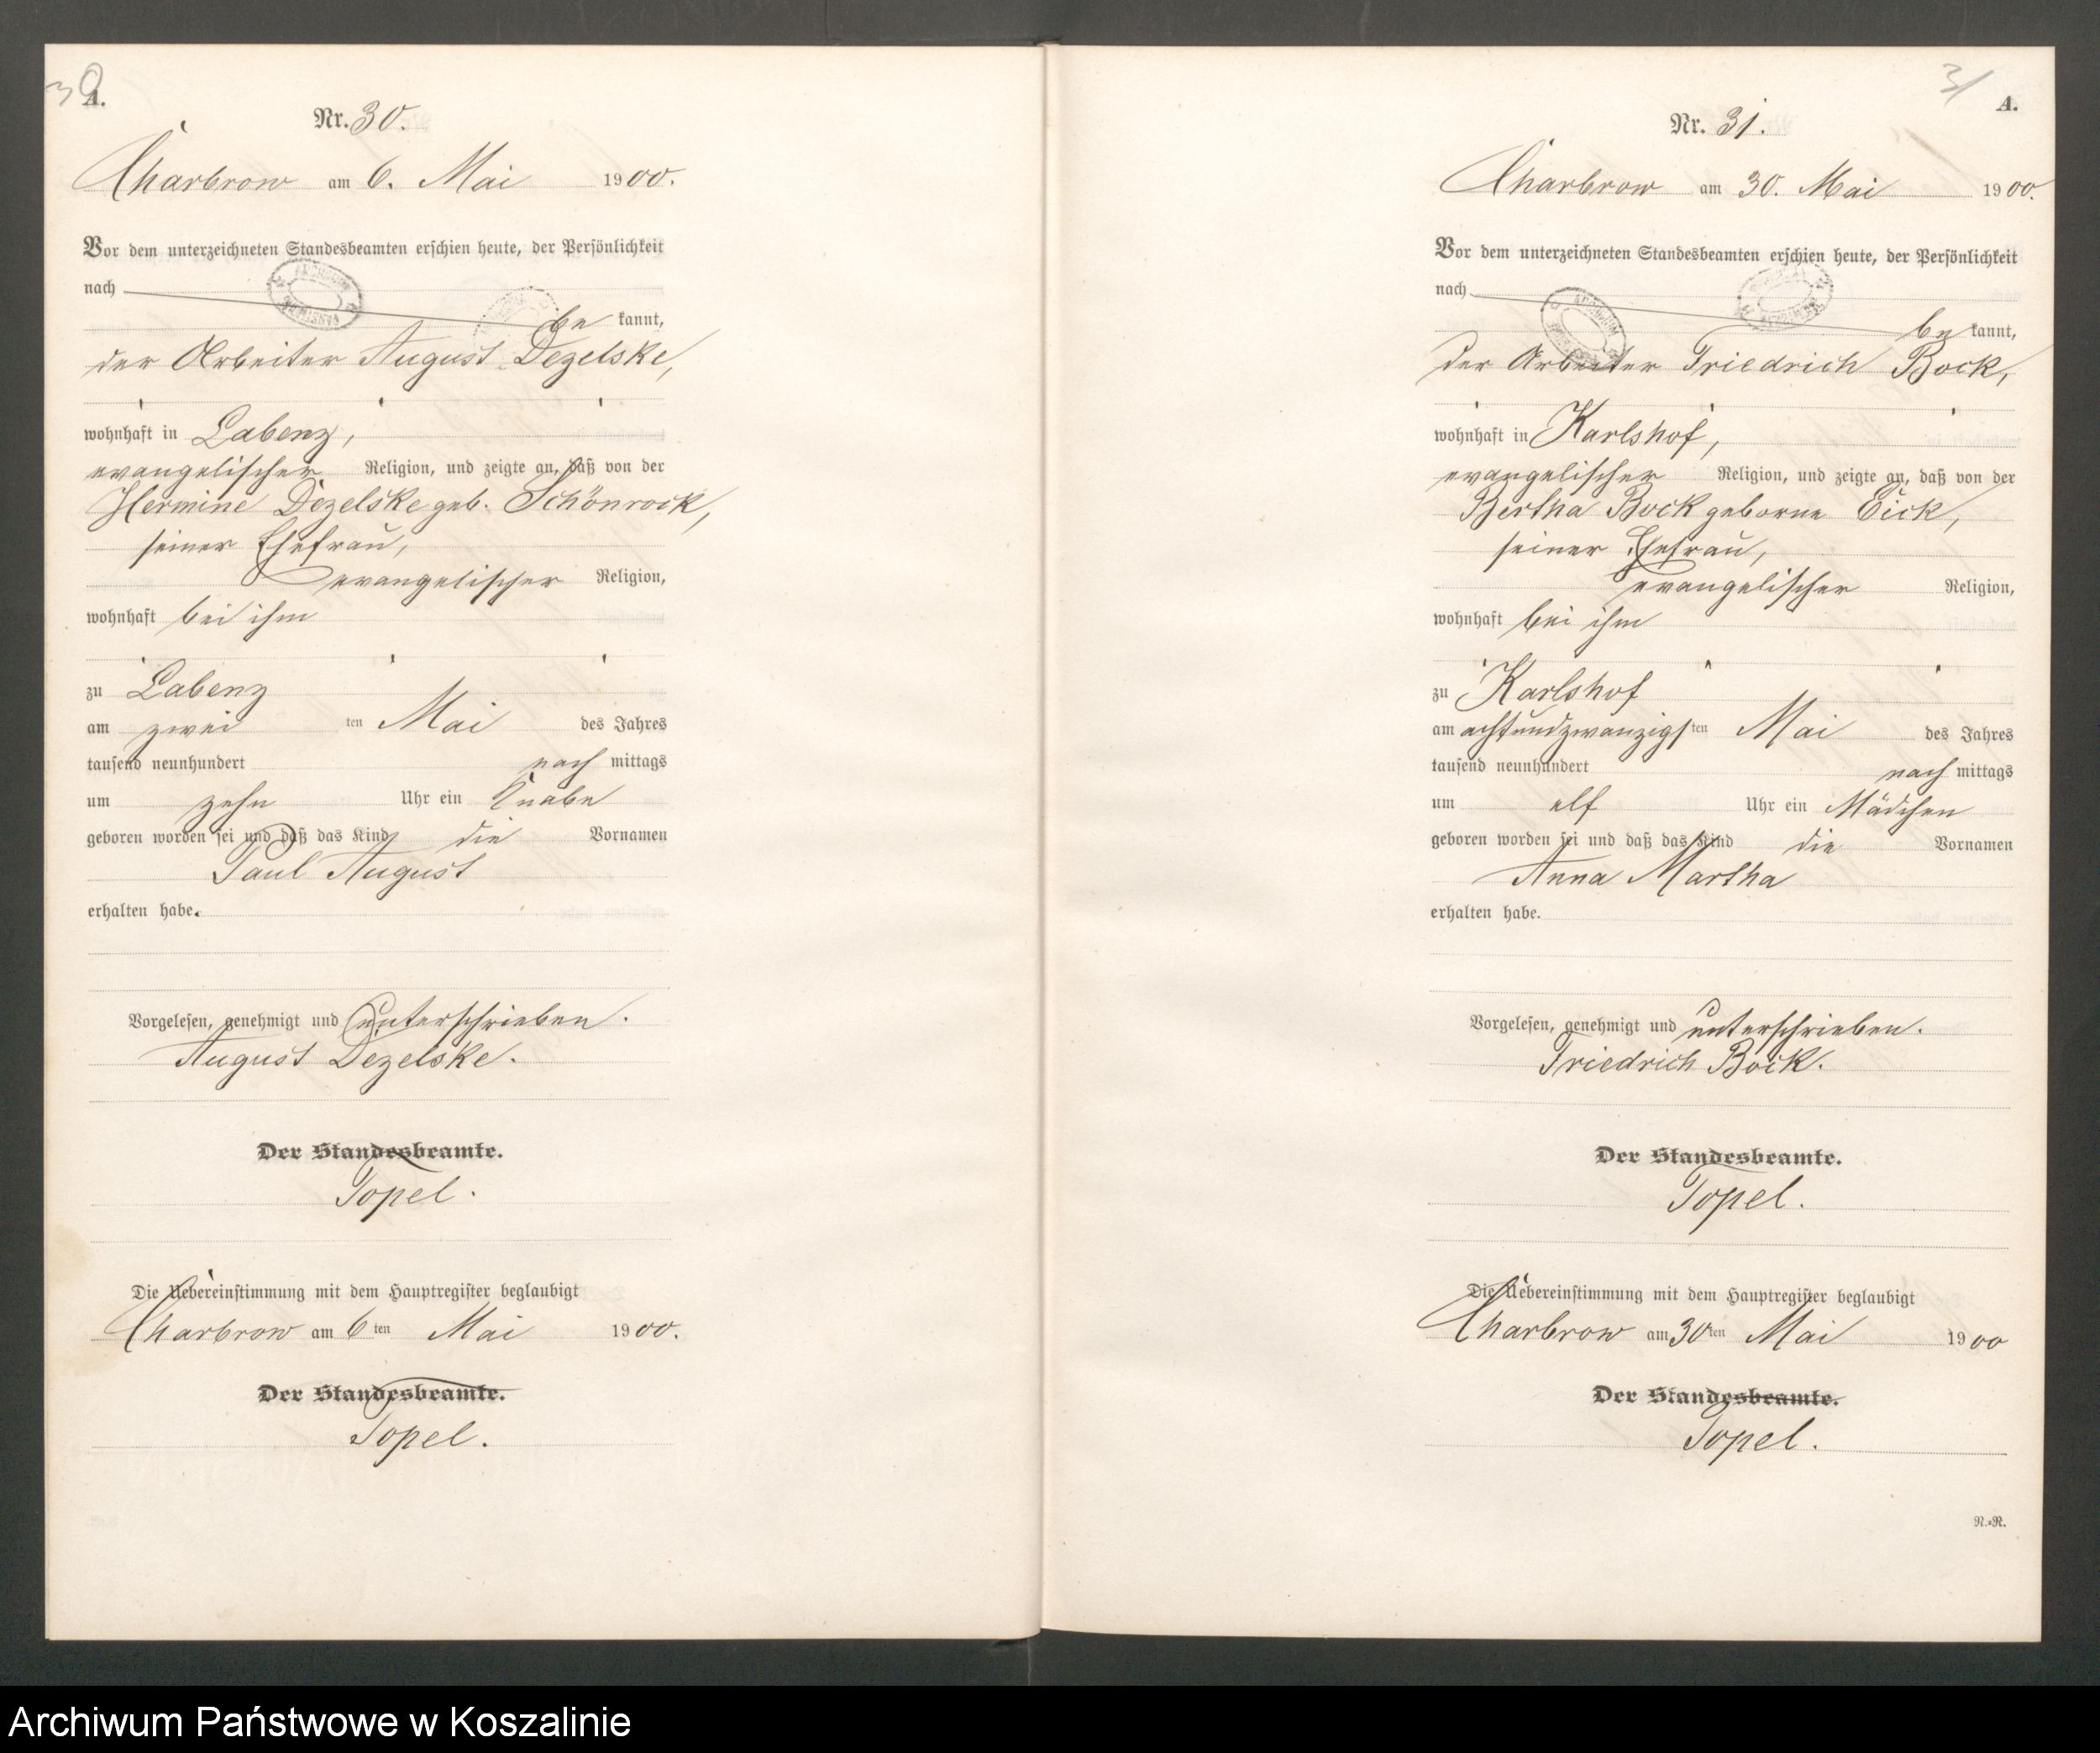 30
A.
Nr. 30.
Charbrow am 6. Mai 1900.
Vor dem unterzeichneten Standesbeamten erschien heute, der Persönlichkeit
nach
be kannt,
der Arbeiter August Dezelske,
wohnhaft in Labenz,
evangelischer Religion, und zeigte an, daß von der
Hermine Dezelske geb. Schönrock,
seiner Ehefrau,
evangelischer Religion,
wohnhaft bei ihm
zu Labenz
am zwei ten Mai des Jahres
tausend neunhundert nach mittags
um zehn Uhr ein Knabe
geboren worden sei und daß das Kind die Vornamen
Paul August
erhalten habe.
Vorgelesen, genehmigt und unterschrieben.
August Dezelske.
Der Standesbeamte.
Topel.
Die Uebereinstimmung mit dem Hauptregister beglaubigt
Charbrow am 6ten Mai 1900.
Der Standesbeamte.
Topel.
31
A.
Nr. 31.
Charbrow am 30. Mai 1900.
Vor dem unterzeichneten Standesbeamten erschien heute, der Persönlichkeit
nach
be kannt,
der Arbeiter Friedrich Bock,
wohnhaft in Karlshof,
evangelischer Religion, und zeigte an, daß von der
Bertha Bock geborne Eick,
seiner Ehefrau,
evangelischer Religion,
wohnhaft bei ihm
zu Karlshof
am achtundzwanzigsten Mai des Jahres
tausend neunhundert nach mittags
um elf Uhr ein Mädchen
geboren worden sei und daß das Kind die Vornamen
Anna Martha
erhalten habe.
Vorgelesen, genehmigt und unterschrieben.
Friedrich Bock.
Der Standesbeamte.
Topel.
Die Uebereinstimmung mit dem Hauptregister beglaubigt
Charbrow am 30ten Mai 1900
Der Standesbeamte.
Topel.
N.=N.
Archiwum Państwowe w Koszalinie